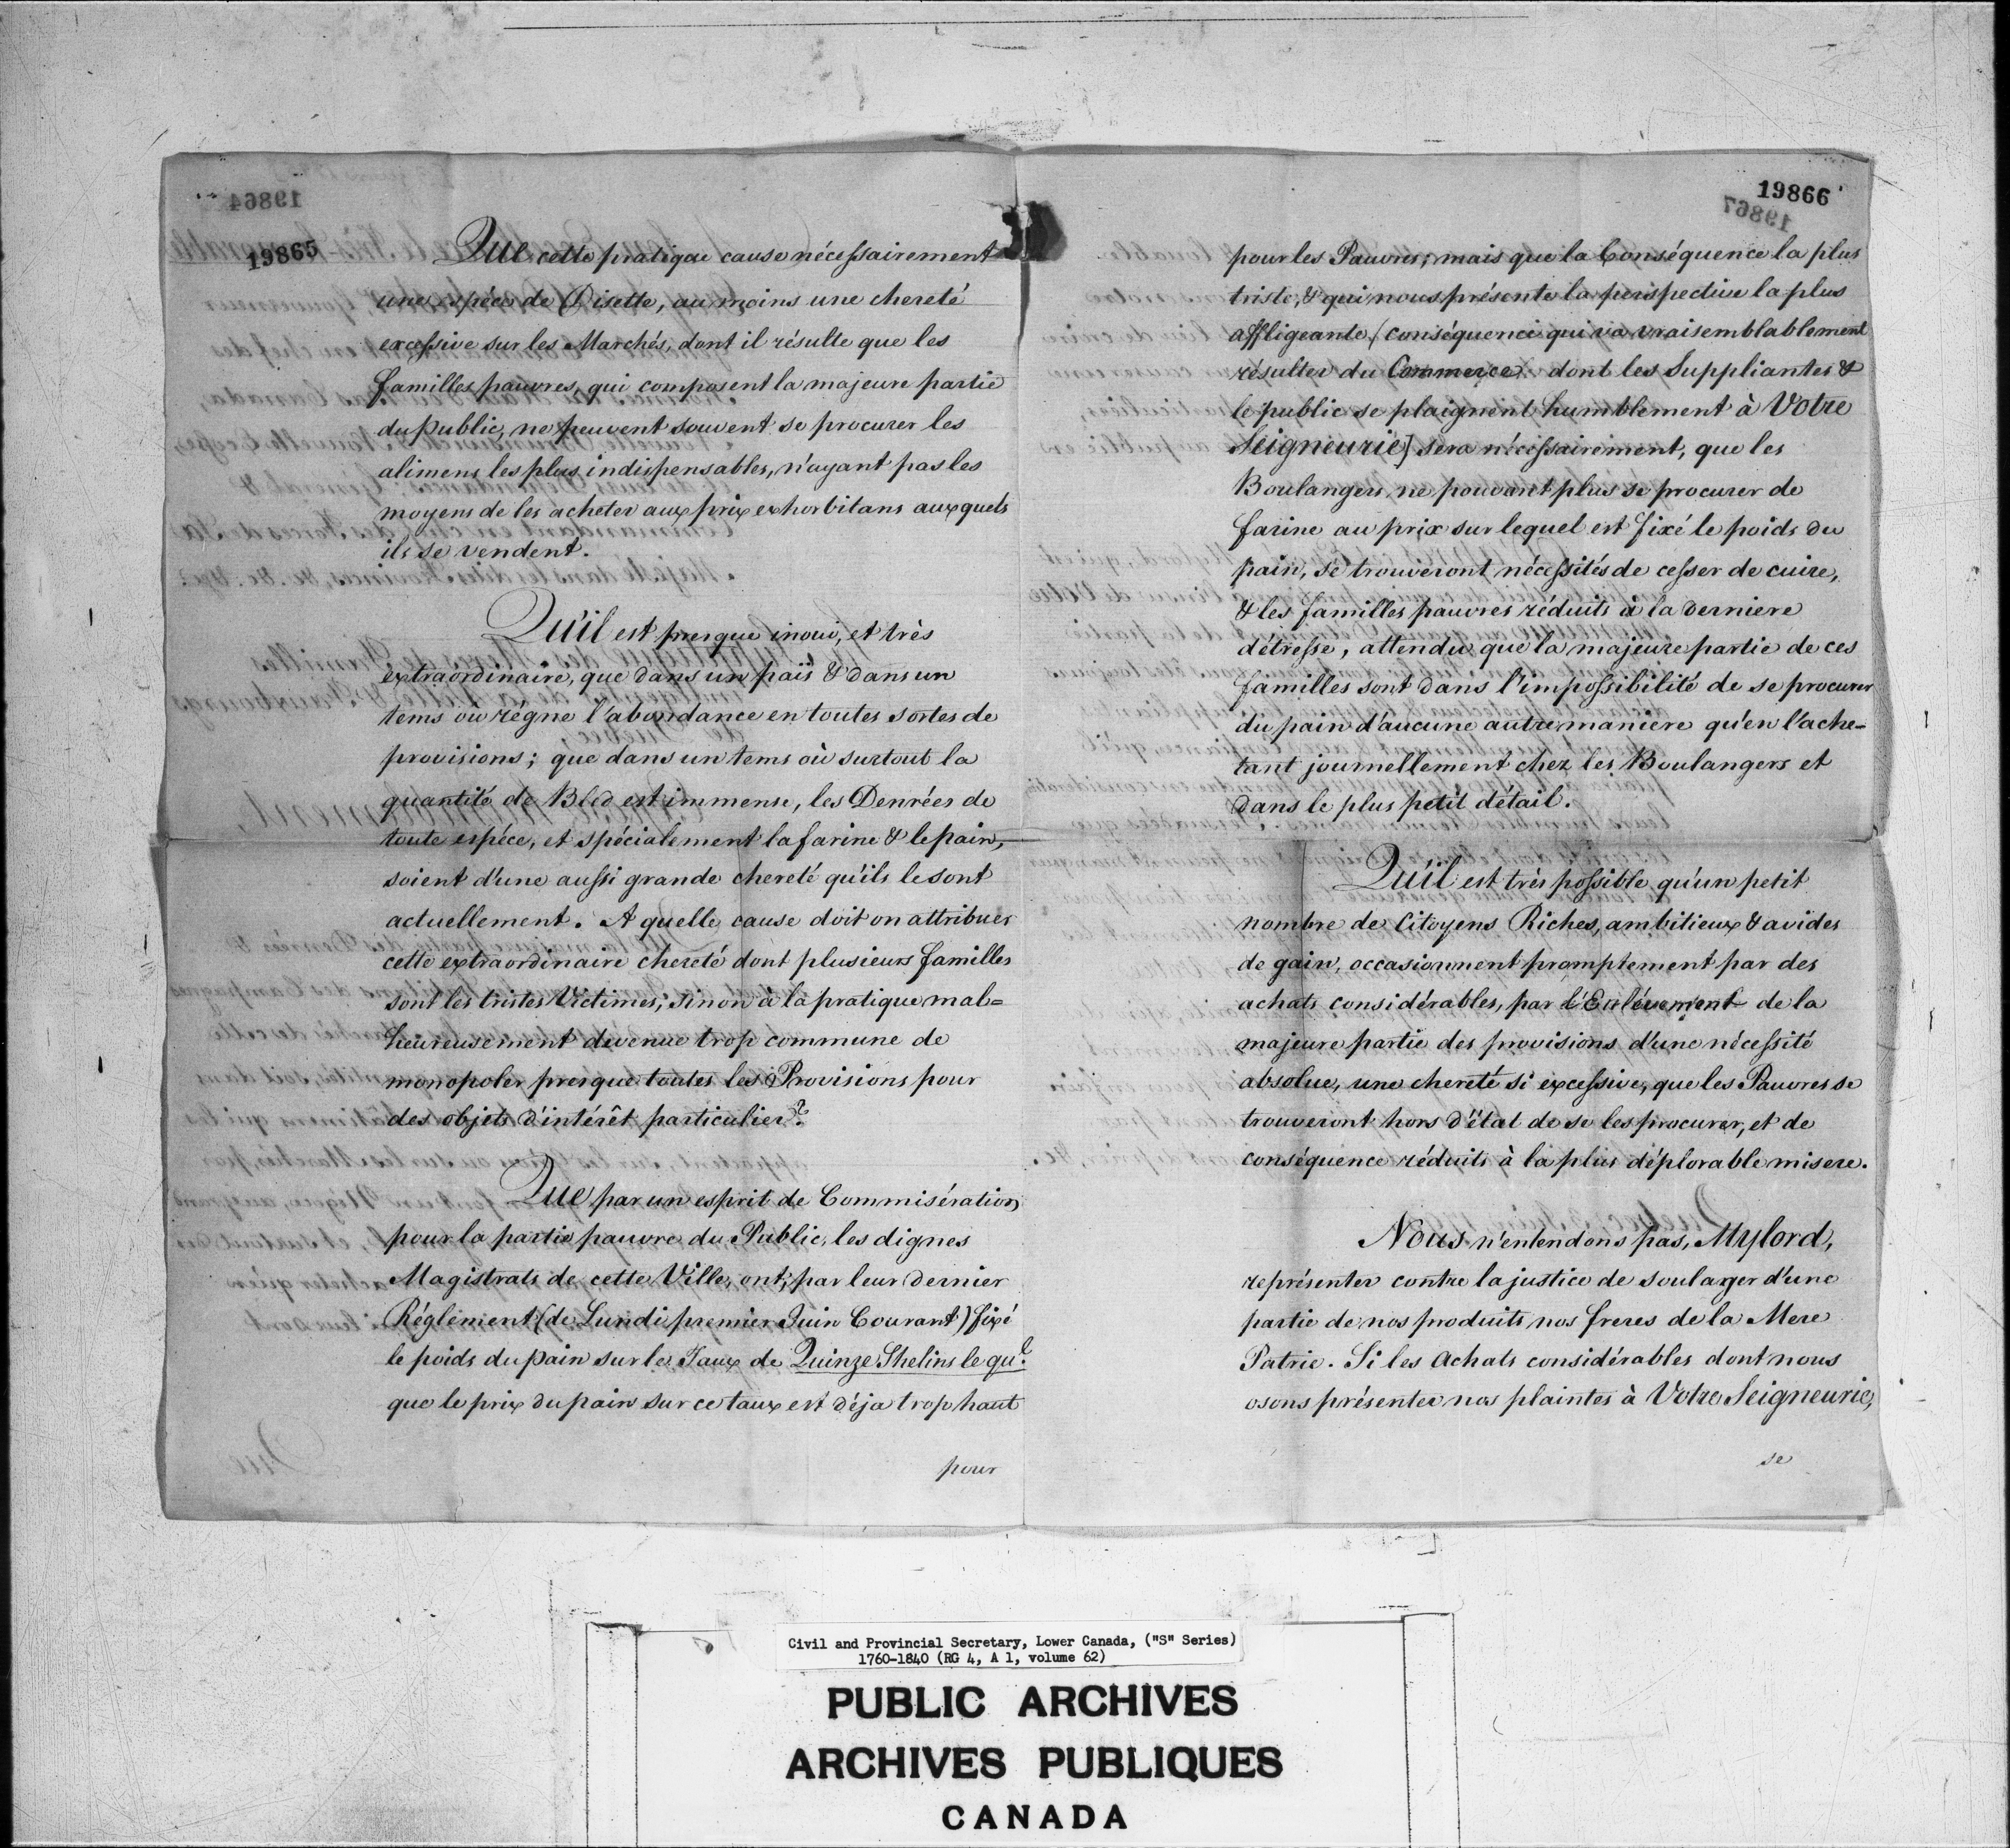 19865
Que cette pratique cause nécessairement
une espéce de Disette, au moins une chereté
excessive sur les Marchés, dont il résulte que les
familles pauvres, qui composent la majeure partie
du public, ne peuvent souvent se procurer les
alimens les plus indispensables, n'ayant pas les
moyens de les acheter aux prix exhorbitans auxquels
ils se vendent.
Qu'il est presque inoui, et très
extraordinaire, que dans un païs & dans un
tems où régne l'abondance en toutes sortes de
provisions; que dans un tems où surtout la
quantité de Bled est immense, les Denrées de
toute espéce, et spécialement la farine & le pain,
soient d'une aussi grande chereté qu'ils le sont
actuellement. A quelle cause doit on attribuer
cette extraordinaire chereté dont plusieurs familles
sont les tristes Victimes; sinon à la pratique mal=
heureusement devenue trop commune de
monopoler presque toutes les Provisions pour
des objets d'intérêt particulier?
Que par un esprit de Commisération
pour la partie pauvre du Public, les dignes
Magistrats de cette Ville, ont, par leur dernier
Réglement (de Lundi premier Juin Courant) fixé
le poids du pain sur le Taux de Quinze Shelins le qu.l
que le prix du pain sur ce taux est déja trop haut
pour
19866
19867
pour les Pauvres; mais que la Conséquence la plus
triste, & qui nous présente la perspective la plus
affligeante (conséquence qui va vraisemblablement
résulter du Commerce dont les Suppliantes &
le public se plaignent humblement à Votre
Seigneurie] sera nécessairement, que les
Boulangers ne pouvant plus se procurer de
farine au prix sur lequel est fixé le poids du
pain, se trouveront nécessités de cesser de cuire,
& les familles pauvres réduits à la derniere
détresse, attendu que la majeure partie de ces
familles sont dans l'impossibilité de se procurer
du pain d'aucune autre maniere qu'en l'ache=
tant journellement chez les Boulangers et
dans le plus petit détail.
Qu'il est très possible qu'un petit
nombre de Citoyens Riches, ambitieux & avides
de gain, occasionnent promptement par des
achats considérables, par l'Enlévement de la
majeure partie des provisions d'une nécessité
absolue, une chereté si excessive, que les Pauvres se
trouveront hors d'état de se les procurer, et de
conséquence réduits à la plus déplorable misere.
Nous n'entendons pas, Mylord,
représenter contre la justice de soulager d'une
partie de nos produits nos freres de la Mere
Patrie. Si les Achats considérables dont nous
osons présenter nos plaintes à Votre Seigneurie,
se
Civil and Provincial Secretary, Lower Canada, ("S" Series)
1760-1840 (RG 4, A 1, volume 62)
PUBLIC ARCHIVES
ARCHIVES PUBLIQUES
CANADA